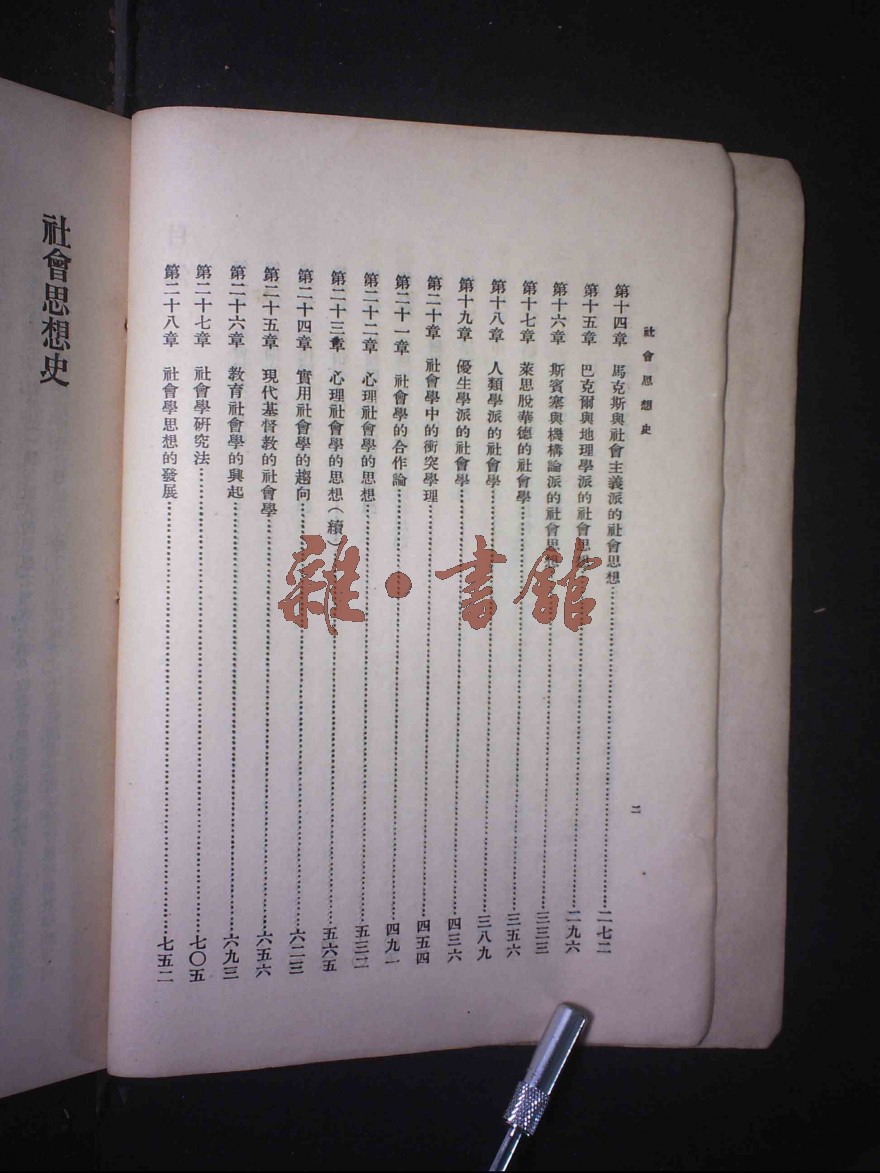 社會思想史
二
第十四章 馬克斯與社會主義派的社會思想 二七二
第十五章 巴克爾與地理學派的社會思想 二九六
第十六章 斯賓塞與機構論派的社會思想 三三三
第十七章 萊思脫華德的社會學 三五六
第十八章 人類學派的社會學 三八九
第十九章 優生學派的社會學 四三六
第二十章 社會學中的衝突學理 四五四
第二十一章 社會學的合作論 四九一
第二十二章 心理社會學的思想 五三二
第二十三章 心理社會學的思想(續) 五六五
第二十四章 實用社會學的趨向 六二三
第二十五章 現代基督教的社會學 六五六
第二十六章 教育社會學的興起 六九三
第二十七章 社會學研究法 七〇五
第二十八章 社會學思想的發展 七五二
社會思想史
雜·書館